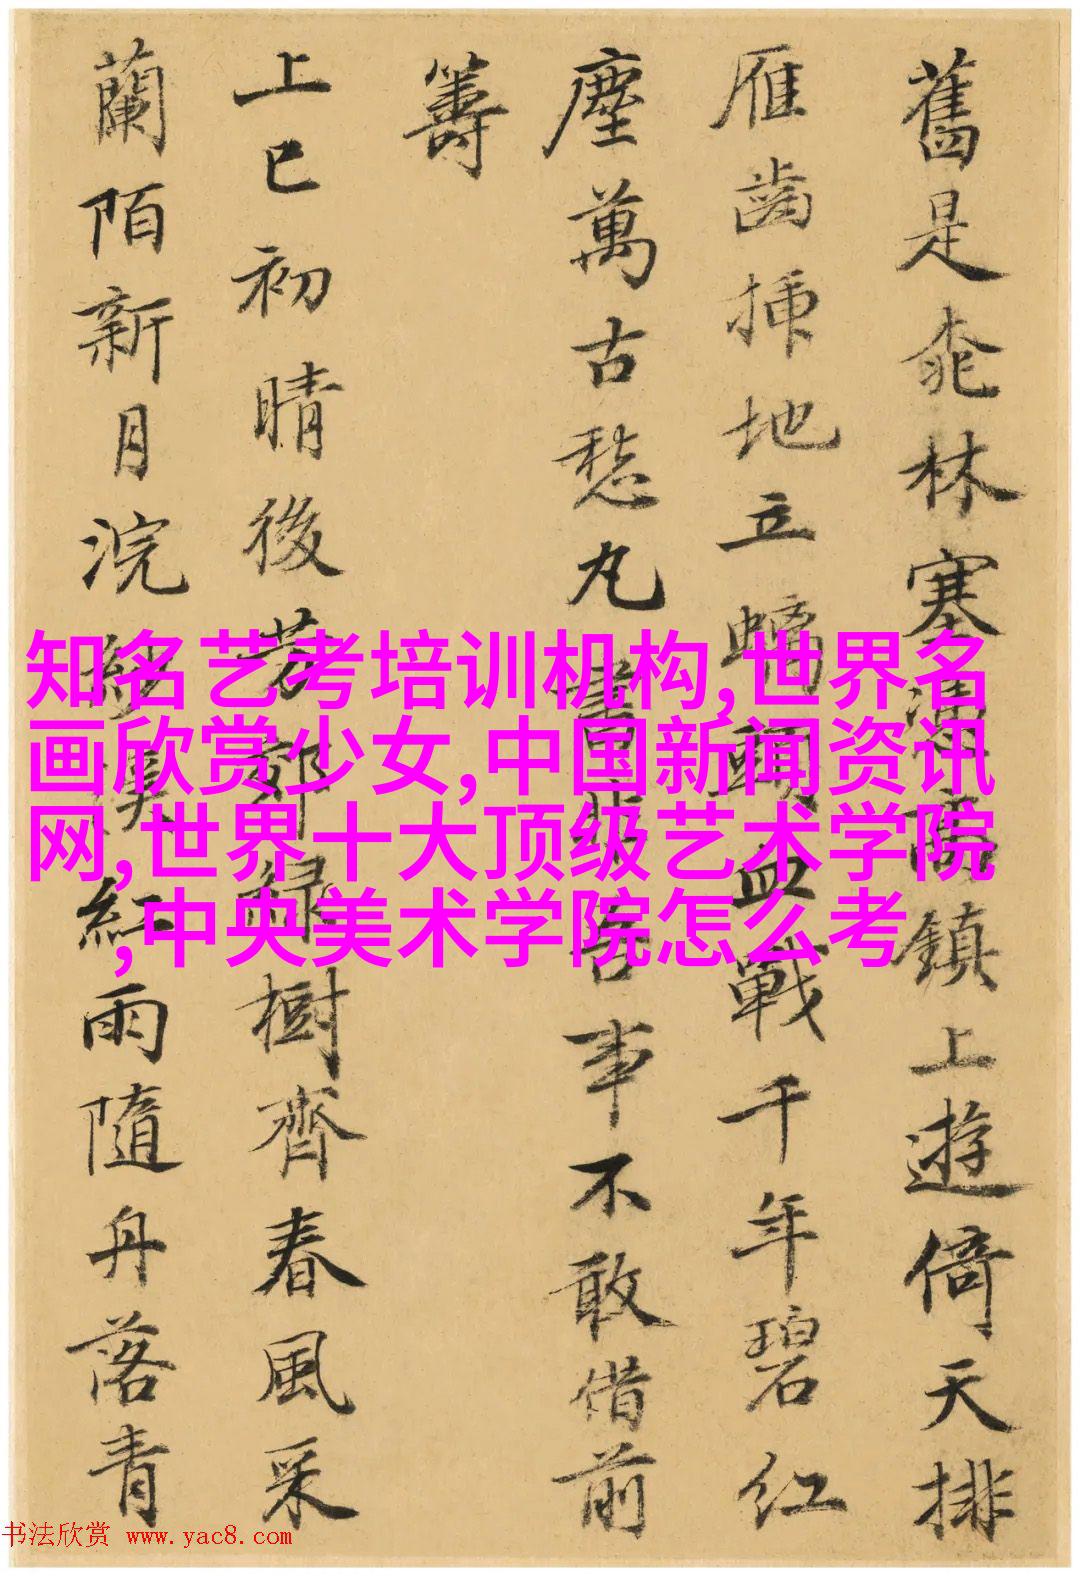 舊是桃林塞
鎮上遊倚天排
雁齒插地立螭頭血戰千年碧紅
塵萬古愁丸書告事不敢借前
籌
上巳初晴後芳郊綠樹齊春風采
蘭陌新月浣紅雨隨丹落青
知名艺考培训机构,世界名
画欣赏少女,中国新闻资讯
网,世界十大顶级艺术学院
,中央美术学院怎么考
书法欣赏 www.yac8.com